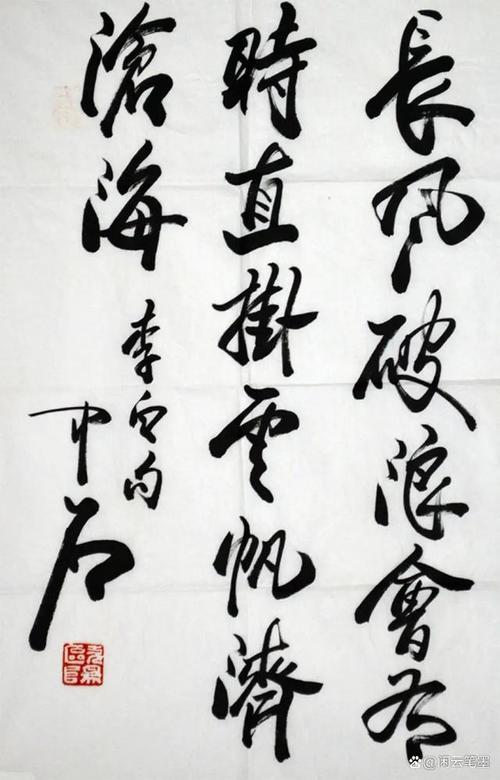 長風破浪會有
時直掛雲帆濟
滄海
李白句
中石
闲云笔墨